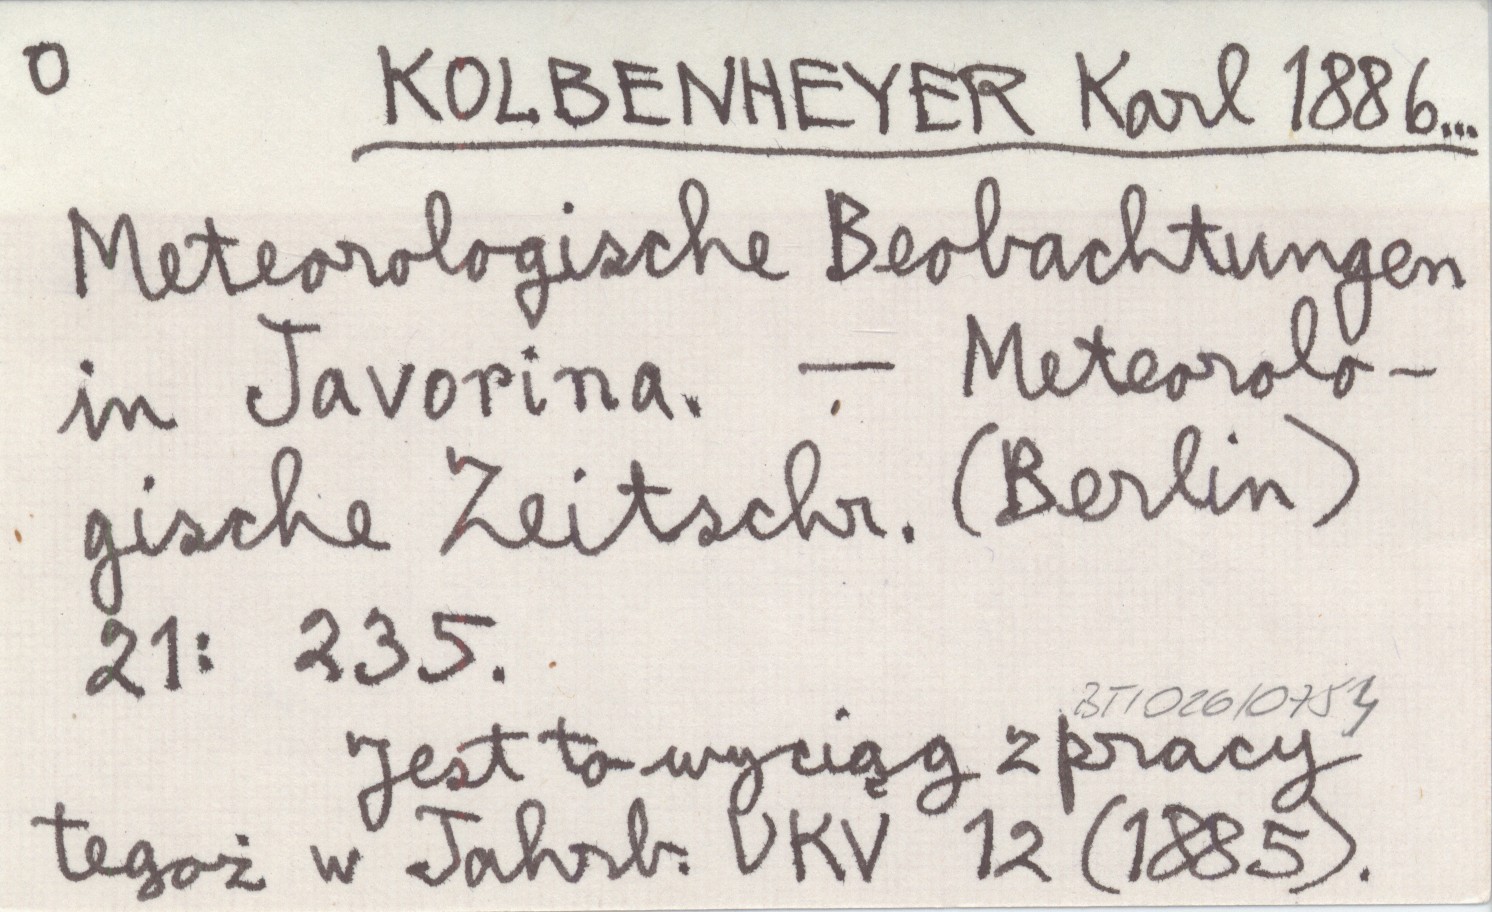 O KOLBENHEYER Karl 1886...
Meteorologische Beobachtungen
in Javorina. — Meteorolo-
gische Zeitschr. (Berlin)
21: 235.
BT/026/0753
Jest to wyciąg z pracy
tegoż w Jahrb. UKV 12 (1885).